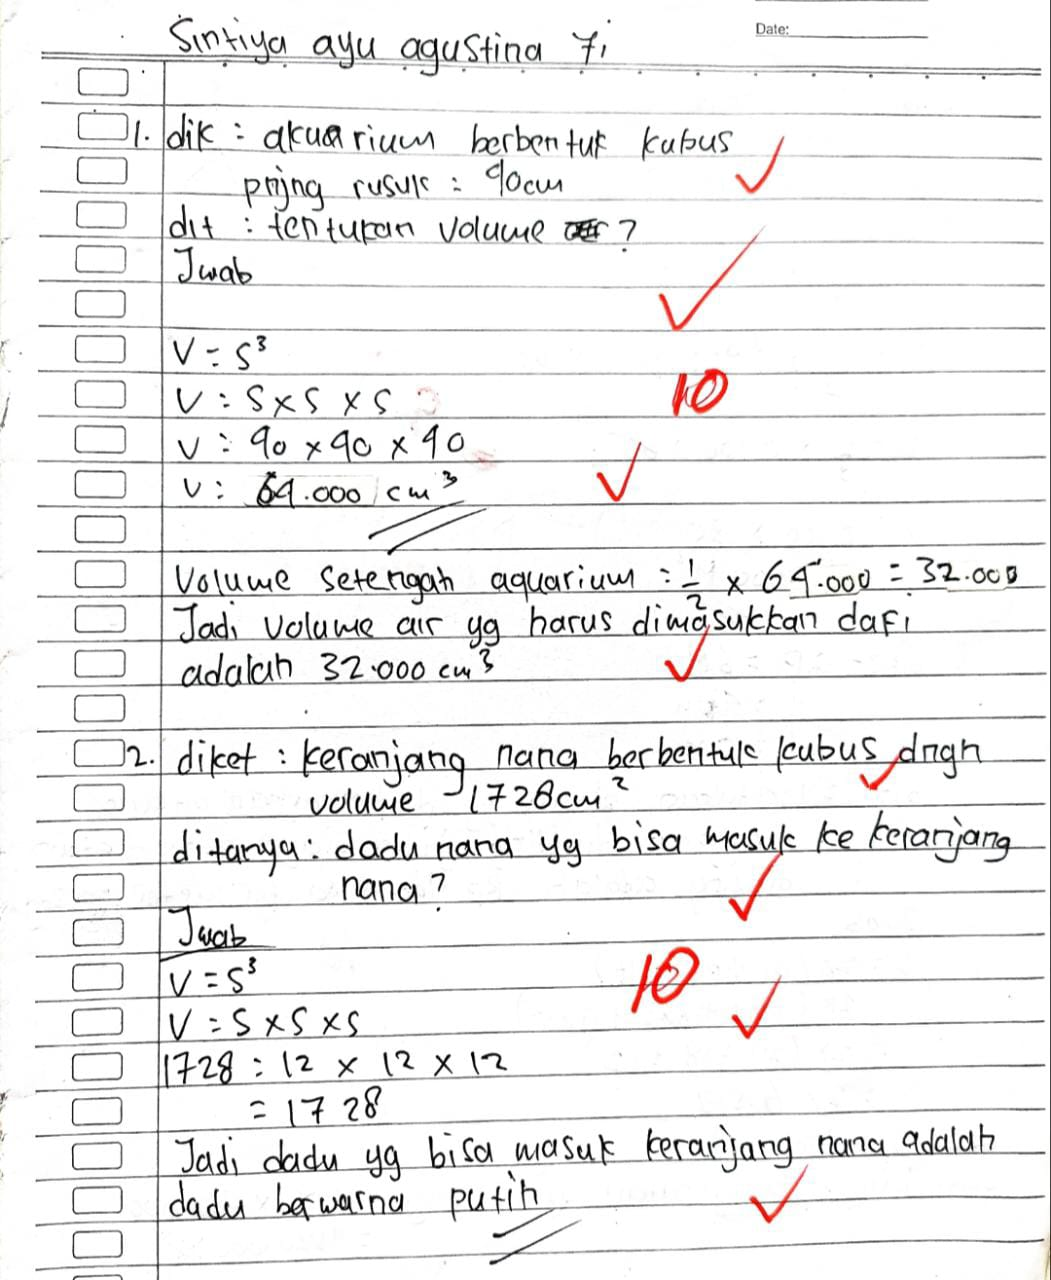 Date:
Sintiya ayu agustina 7i
1. dik : akuarium berbentuk kubus
pnjng rusuk : 40cm
dit : tentukan volume ?
Jwab
V = S³
V : S x S x S
10
V : 40 x 40 x 40
V : 64.000 cm³
Volume setengah aquarium : 1/2 x 64.000 = 32.000
Jadi volume air yg harus dimasukkan dafi
adalah 32.000 cm³
2. diket : keranjang nana berbentuk kubus dngn
volume 1728cm²
ditanya : dadu nana yg bisa masuk ke keranjang
nana ?
Jwab
V = S³
10
V = S x S x S
1728 : 12 x 12 x 12
= 1728
Jadi dadu yg bisa masuk keranjang nana adalah
dadu berwarna putih